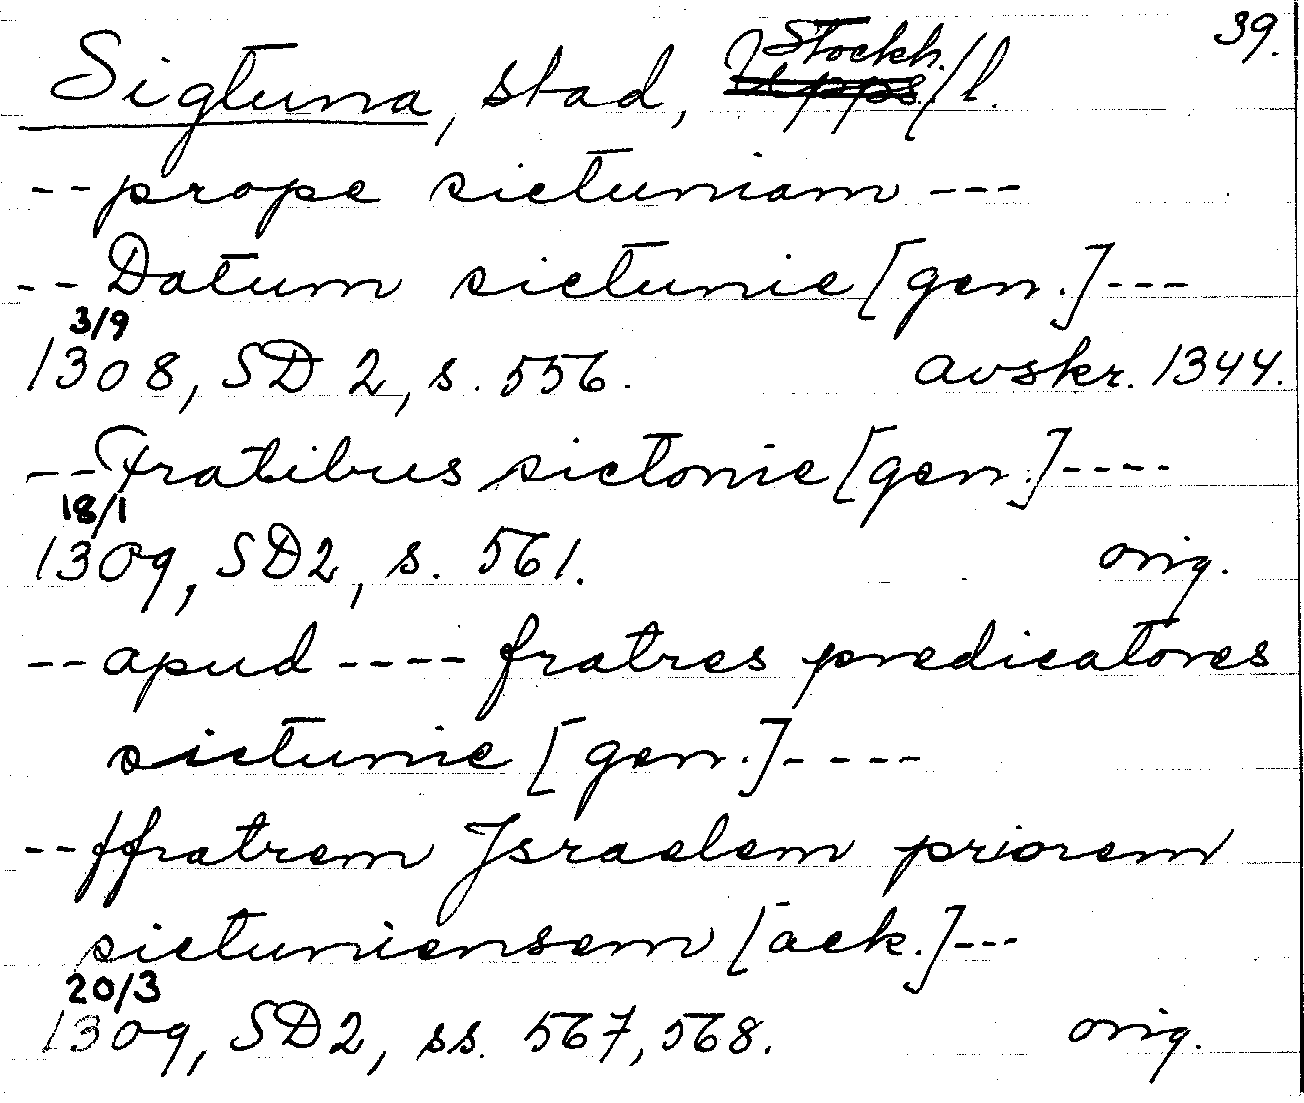 39.
Sigtuna, stad, Stockh./l.
--prope sictuniam---
--Datum sictunie [gen.]---
3/9
1308, SD 2, s. 556. avskr. 1344.
--Fratibus sictonie [gen.]----
18/1
1309, SD2, s. 561. orig.
--apud----fratres predicatores
sictunie [gen.]----
--ffratrem Jsraelem priorem
sictuniensem [ack.]---
20/3
1309, SD2, ss. 567, 568. orig.